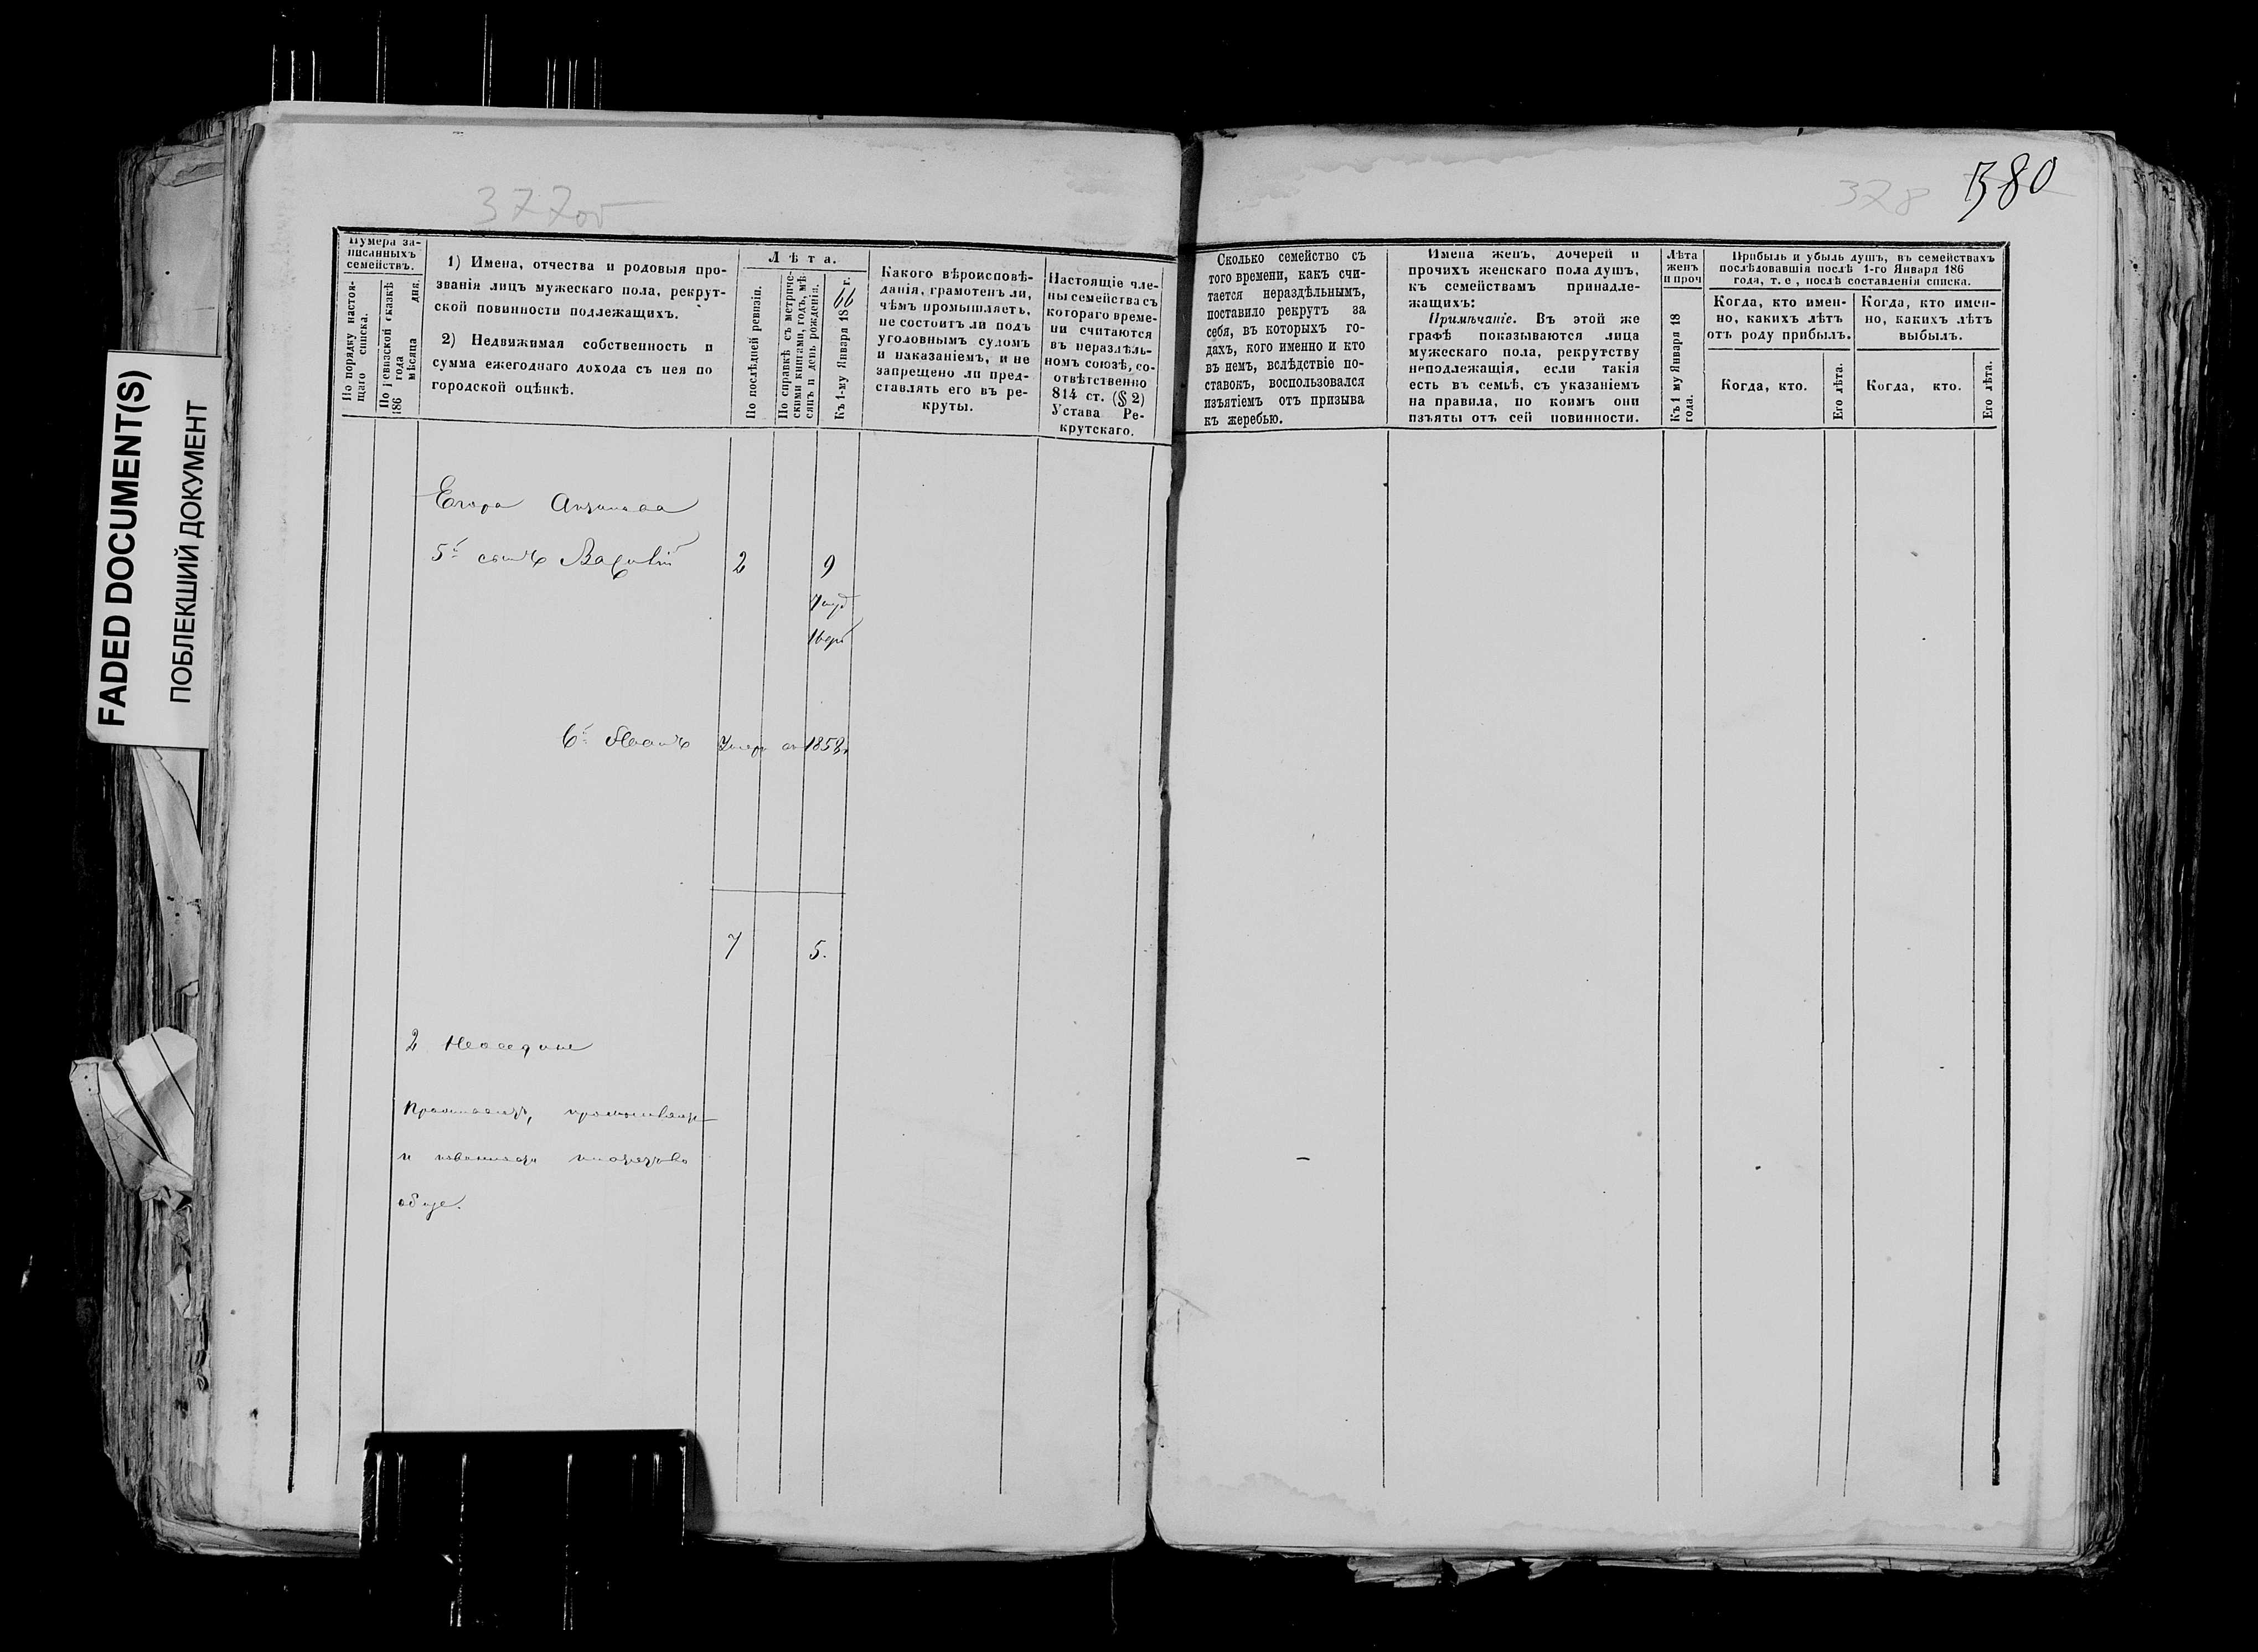 FADED DOCUMENT(S)
ПОБЛЕКШИЙ ДОКУМЕНТ
377об
Нумера за-
писанныхъ
семействъ.
По порядку настоя-
щаго списка.
По ревизской сказкѣ
186 года
мѣсяца дня.
1) Имена, отчества и родовыя про-
званія лицъ мужескаго пола, рекрут-
ской повинности подлежащихъ.
2) Недвижимая собственность и
сумма ежегоднаго дохода съ нея по
городской оцѣнкѣ.
Лѣта.
По послѣдней ревизіи.
По справкѣ съ метриче-
скими книгами, годъ, мѣ
сяцъ и день рожденія.
Къ 1-му Января 1866 г.
Какого вѣроисповѣ-
данія, грамотенъ ли,
чѣмъ промышляетъ,
не состоитъ ли подъ
уголовнымъ судомъ
и наказаніемъ, и не
запрещено ли пред-
ставлять его въ ре-
круты.
Настоящіе чле-
ны семейства съ
котораго време-
ни считаются
въ нераздѣль-
номъ союзѣ, со-
отвѣтственно
814 ст. (§ 2)
Устава Ре-
крутскаго.
Егора
5й сынъ 2 9
6й Иванъ умеръ въ 1858г.
7 5.
2
и
обще.
328 380
Сколько семейство съ
того времени, какъ счи-
тается нераздѣльнымъ,
поставило рекрутъ за
себя, въ которыхъ го-
дахъ, кого именно и кто
въ немъ, вслѣдствіе по-
ставокъ, воспользовался
изъятіемъ отъ призыва
къ жеребью.
Имена женъ, дочерей и
прочихъ женскаго пола душъ,
къ семействамъ принадле-
жащихъ:
Примѣчаніе. Въ этой же
графѣ показываются лица
мужескаго пола, рекрутству
неподлежащія, если такія
есть въ семьѣ, съ указаніемъ
на правила, по коимъ они
изъяты отъ сей повинности.
Лѣта
женъ
и проч
Къ 1 му Января 18
года.
Прибыль и убыль душъ, въ семействахъ
послѣдовавшія послѣ 1-го Января 186
года, т. е, послѣ составленія списка.
Когда, кто имен-
но, какихъ лѣтъ
отъ роду прибылъ.
Когда, кто.
Его лѣта.
Когда, кто имен-
но, какихъ лѣтъ
выбылъ.
Когда, кто.
Его лѣта.